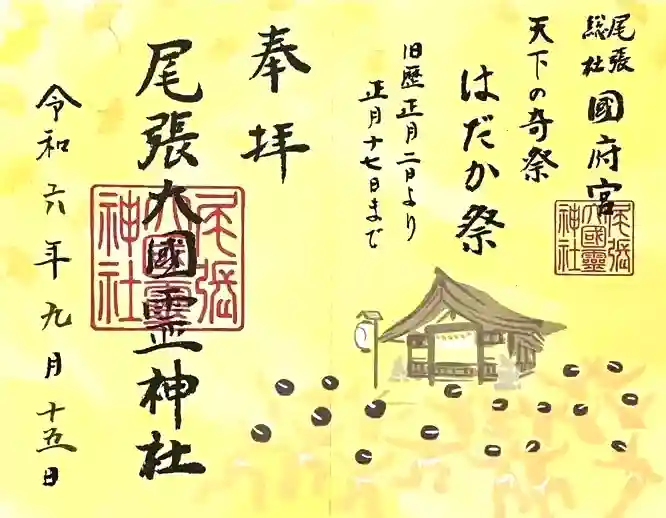 尾張
総社
國府宮
天下の奇祭
はだか祭
旧歴正月二日より
正月十七日まで
奉拝
尾張大國霊神社
令和六年九月十五日
尾張
大國霊
神社
尾張
大國霊
神社